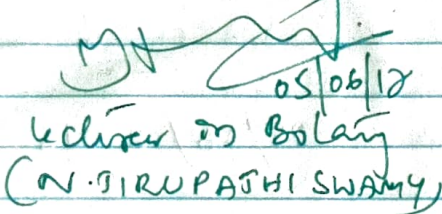 05/06/12
Lecturer in Botany
(N. TIRUPATHI SWAMY)